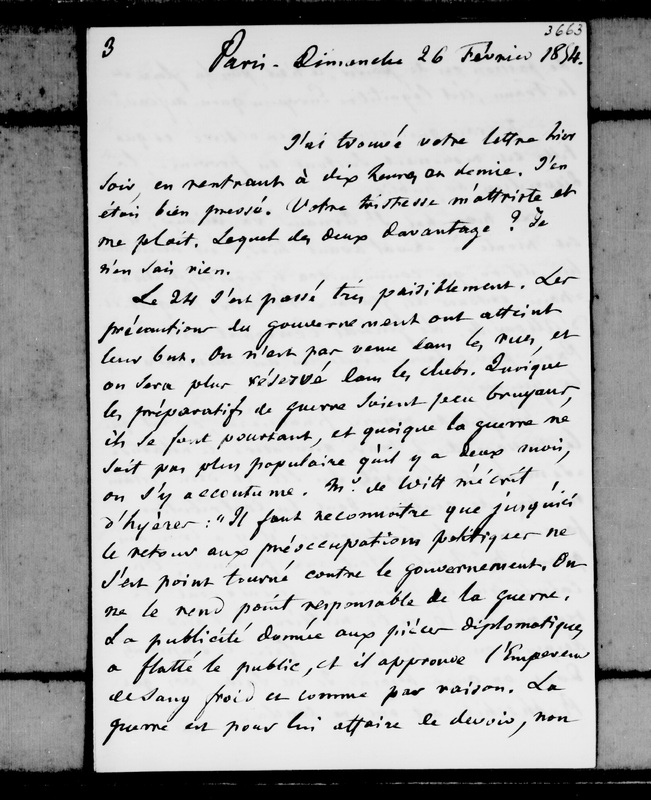 3663
3
Paris - Dimanche 26 Février 1854.
J'ai trouvé votre lettre hier
soir, en rentrant à dix heures, en demie. J'en
étais bien pressé. Votre tristesse m'attriste et
me plait. Lequel des deux davantage ? Je
n'en sais rien.
Le 24 s'est passé très paisiblement. Les
précautions du gouvernement ont atteint
leur but. On n'est pas venu dans les rues, et
on sera plus réservé dans les clubs. Quoique
les préparatifs de guerre soient peu bruyans,
ils se font pourtant, et quoique la guerre ne
soit pas plus populaire qu'il y a deux mois,
on s'y accoutume. Mr. de Witt m'écrit
d'hyères : "Il faut reconnoitre que jusqu'ici
le retour aux préoccupations politiques ne
s'est point tourné contre le gouvernement. On
ne le rend point responsable de la guerre.
La publicité donnée aux pièces diplomatiques
a flatté le public, et il approuve l'Empereur
de sang froid et comme par raison. La
guerre est pour lui affaire de devoir, non